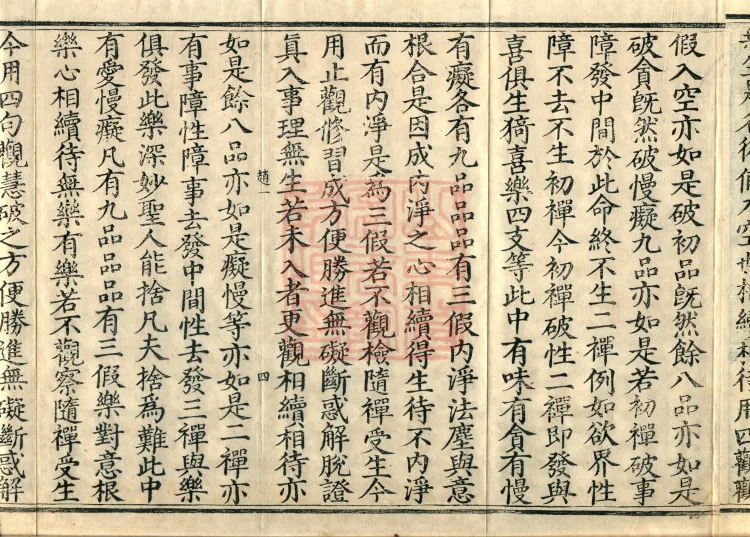 假入空亦如是破初品既然餘八品亦如是
破貪既然破慢癡九品亦如是若初禪破事
障發中間於此命終不生二禪例如欲界性
障不去不生初禪今初禪破性二禪即發與
喜俱生猗喜樂四支等此中有味有貪有慢
有癡各有九品品品有三假內淨法塵與意
根合是因成內淨之心相續得生待不內淨
而有內淨是為三假若不觀檢隨禪受生今
用止觀修習成方便勝進無礙斷惑解脫證
真入事理無生若未入者更觀相續相待亦
趙一 四
如是餘八品亦如是癡慢等亦如是二禪亦
有事障性障事去發中間性去發三禪與樂
俱發此樂深妙聖人能捨凡夫捨為難此中
有愛慢癡凡有九品品品有三假樂對意根
樂心相續待無樂有樂若不觀察隨禪受生
今用四句觀慧破之方便勝進無礙斷惑解